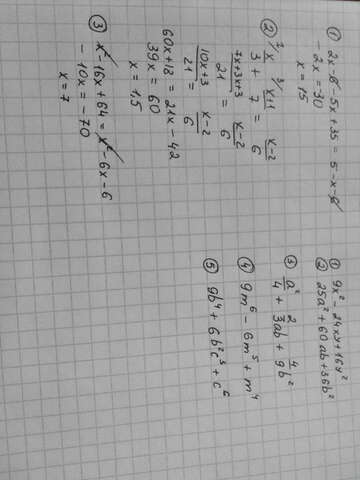 ① 2x - 6 - 5x + 35 = 5 - x - 6
- 2x = -30
x = 15
② 7/ x/3 + 3/ x+1/7 = x-2/6
7x+3x+3/21 = x-2/6
10x+3/21 = x-2/6
60x+18 = 21x - 42
39x = 60
x = 1,5
③ x² - 16x + 64 = x² - 6x - 6
- 10x = -70
x = 7
① 9x² - 24xy + 16y²
② 25a² + 60ab + 36b²
③ a²/4 + 2/3ab + 4/9b²
④ 9m⁶ - 6m⁵ + m⁴
⑤ 9b⁴ + 6b²c³ + c⁶